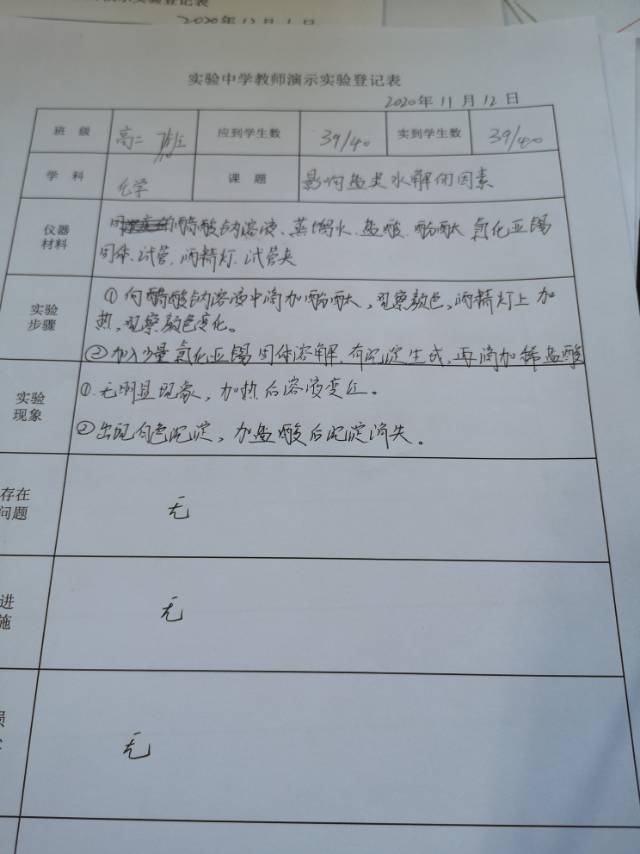 2020年12月1日
实验中学教师演示实验登记表
2020年11月12日
班级 高二 应到学生数 39/40 实到学生数 39/40
学科 化学 课题 影响盐类水解的因素
仪器材料
醋酸钠溶液、蒸馏水、盐酸、酚酞、氯化亚锡
固体、试管、酒精灯、试管夹
实验步骤
①向醋酸钠溶液中滴加酚酞，观察颜色，酒精灯上加
热，观察颜色变化。
②加入少量氯化亚锡固体溶解，有沉淀生成，再滴加稀盐酸
实验现象
①无明显现象，加热后溶液变红。
②出现白色沉淀，加盐酸后沉淀消失。
存在
问题
无
进
施
无
无